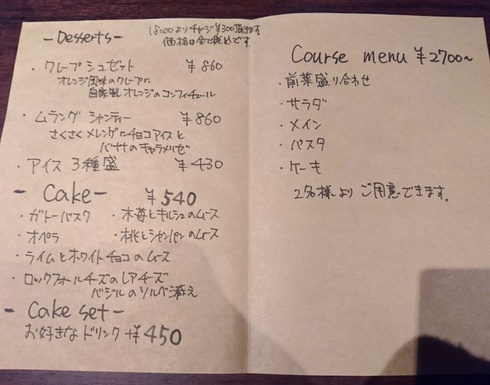 - Desserts -
18:00よりチャージ¥300頂きます
価格は全て税込です。
・クレープシュゼット ¥860
オレンジ風味のクレープに
自家製オレンジのコンフィチュール
・ムラング シャンティー ¥860
さくさくメレンゲにチョコアイスと
バナナのキャラメリゼ
・アイス 3種盛 ¥430
- Cake - ¥540
・ガトーバスク ・木苺とキルシュのムース
・オペラ ・桃とシャンパンのムース
・ライムとホワイトチョコのムース
・ロックフォールチーズのレアチーズ
バジルのソルベ添え
- Cake set -
お好きなドリンク +¥450
Course menu ¥2700~
・前菜盛り合わせ
・サラダ
・メイン
・パスタ
・ケーキ
2名様よりご用意できます。